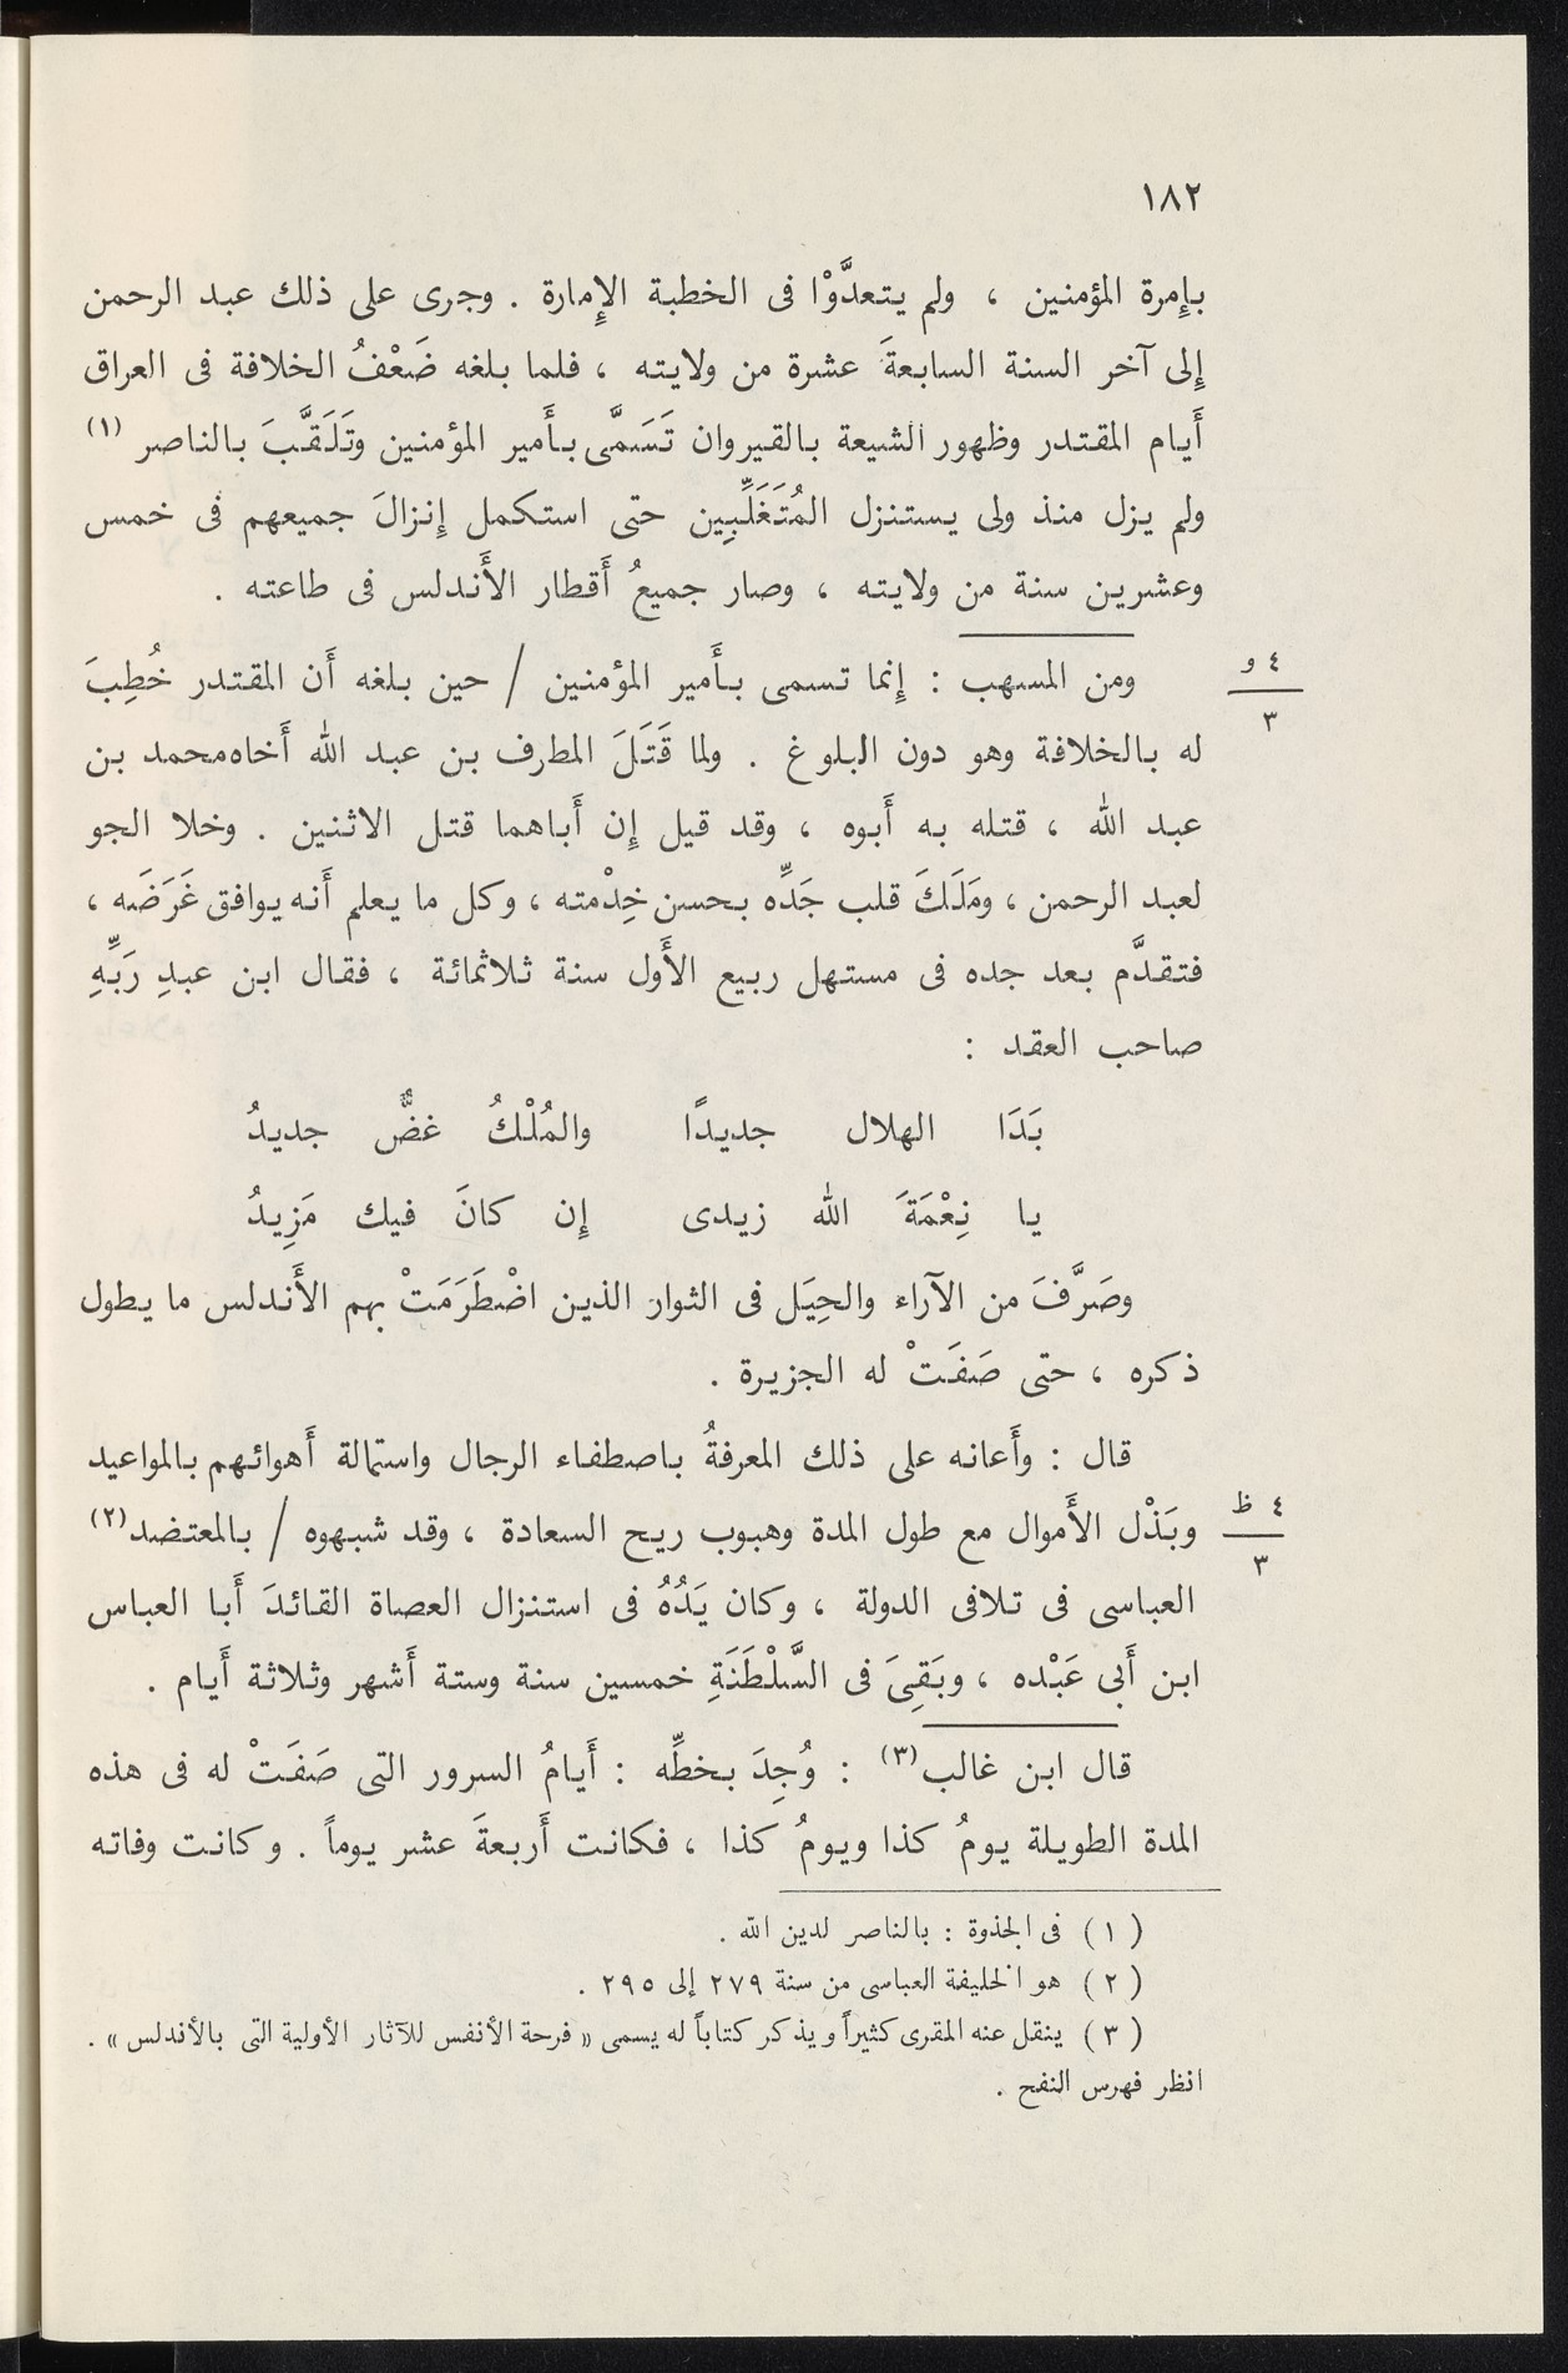 ١٨٢
بإِمرة المؤمنين ، ولم يتعدَّوْا فى الخطبة الإِمارة . وجرى على ذلك عبد الرحمن
إِلى آخر السنة السابعةَ عشرة من ولايته ، فلما بلغه ضَعْفُ الخلافة فى العراق
أَيام المقتدر وظهور الشيعة بالقيروان تَسَمَّى بأَمير المؤمنين وتَلَقَّبَ بالناصر (١)
ولم يزل منذ ولى يستنزل المُتَغَلِّبِين حتى استكمل إِنزالَ جميعهم فى خمس
وعشرين سنة من ولايته ، وصار جميعُ أَقطار الأَندلس فى طاعته .
ومن المسهب : إِنما تسمى بأَمير المؤمنين / حين بلغه أَن المقتدر خُطِبَ
٤ و
٣
له بالخلافة وهو دون البلوغ . ولما قَتَلَ المطرف بن عبد الله أَخاه محمد بن
عبد الله ، قتله به أَبوه ، وقد قيل إِن أَباهما قتل الاثنين . وخلا الجو
لعبد الرحمن ، ومَلَكَ قلب جَدِّه بحسن خِدْمته ، وكل ما يعلم أَنه يوافق غَرَضَه ،
فتقدَّم بعد جده فى مستهل ربيع الأَول سنة ثلاثمائة ، فقال ابن عبدِ رَبِّهِ
صاحب العقد :
بَدَا الهلال جديدًا والمُلْكُ غضٌّ جديدُ
يا نِعْمَةَ الله زيدى إِن كانَ فيك مَزِيدُ
وصَرَّفَ من الآراء والحِيَل فى الثوار الذين اضْطَرَمَتْ بهم الأَندلس ما يطول
ذكره ، حتى صَفَتْ له الجزيرة .
قال : وأَعانه على ذلك المعرفةُ باصطفاء الرجال واستمالة أَهوائهم بالمواعيد
وبَذْل الأَموال مع طول المدة وهبوب ريح السعادة ، وقد شبهوه / بالمعتضد (٢)
٤ ظ
٣
العباسى فى تلافى الدولة ، وكان يَدُهُ فى استنزال العصاة القائدَ أَبا العباس
ابن أَبى عَبْده ، وبَقِىَ فى السَّلْطَنَةِ خمسين سنة وستة أَشهر وثلاثة أَيام .
قال ابن غالب (٣) : وُجِدَ بخطِّه : أَيامُ السرور التى صَفَتْ له فى هذه
المدة الطويلة يومُ كذا ويومُ كذا ، فكانت أَربعةَ عشر يوماً . وكانت وفاته
( ١ ) فى الجذوة : بالناصر لدين الله .
( ٢ ) هو الخليفة العباسى من سنة ٢٧٩ إلى ٢٩٥ .
( ٣ ) ينقل عنه المقرى كثيراً ويذكر كتاباً له يسمى « فرحة الأنفس للآثار الأولية التى بالأندلس » .
انظر فهرس النفح .